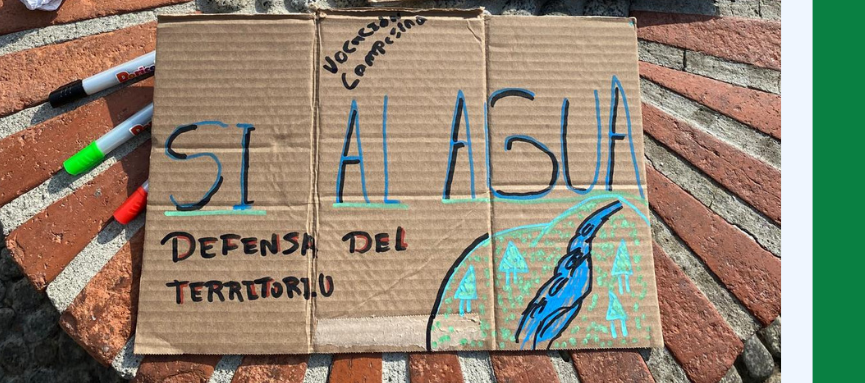 Vocación
Campesina
SI AL AGUA
DEFENSA DEL
TERRITORIO